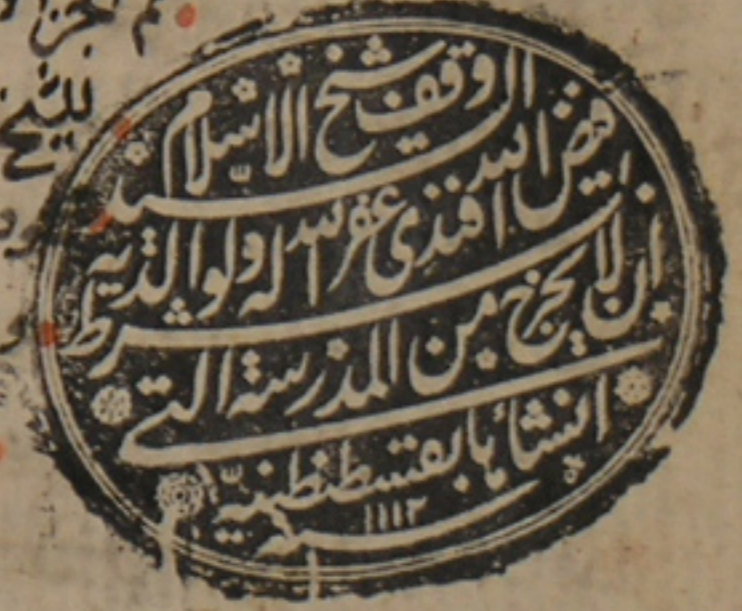 وقف شيخ الاسلام السيد
فيض الله افندى غفر الله له ولوالديه
بشرط ان لا يخرج من المدرسة التى
انشأها بقسطنطنية
سنة ١١١٢